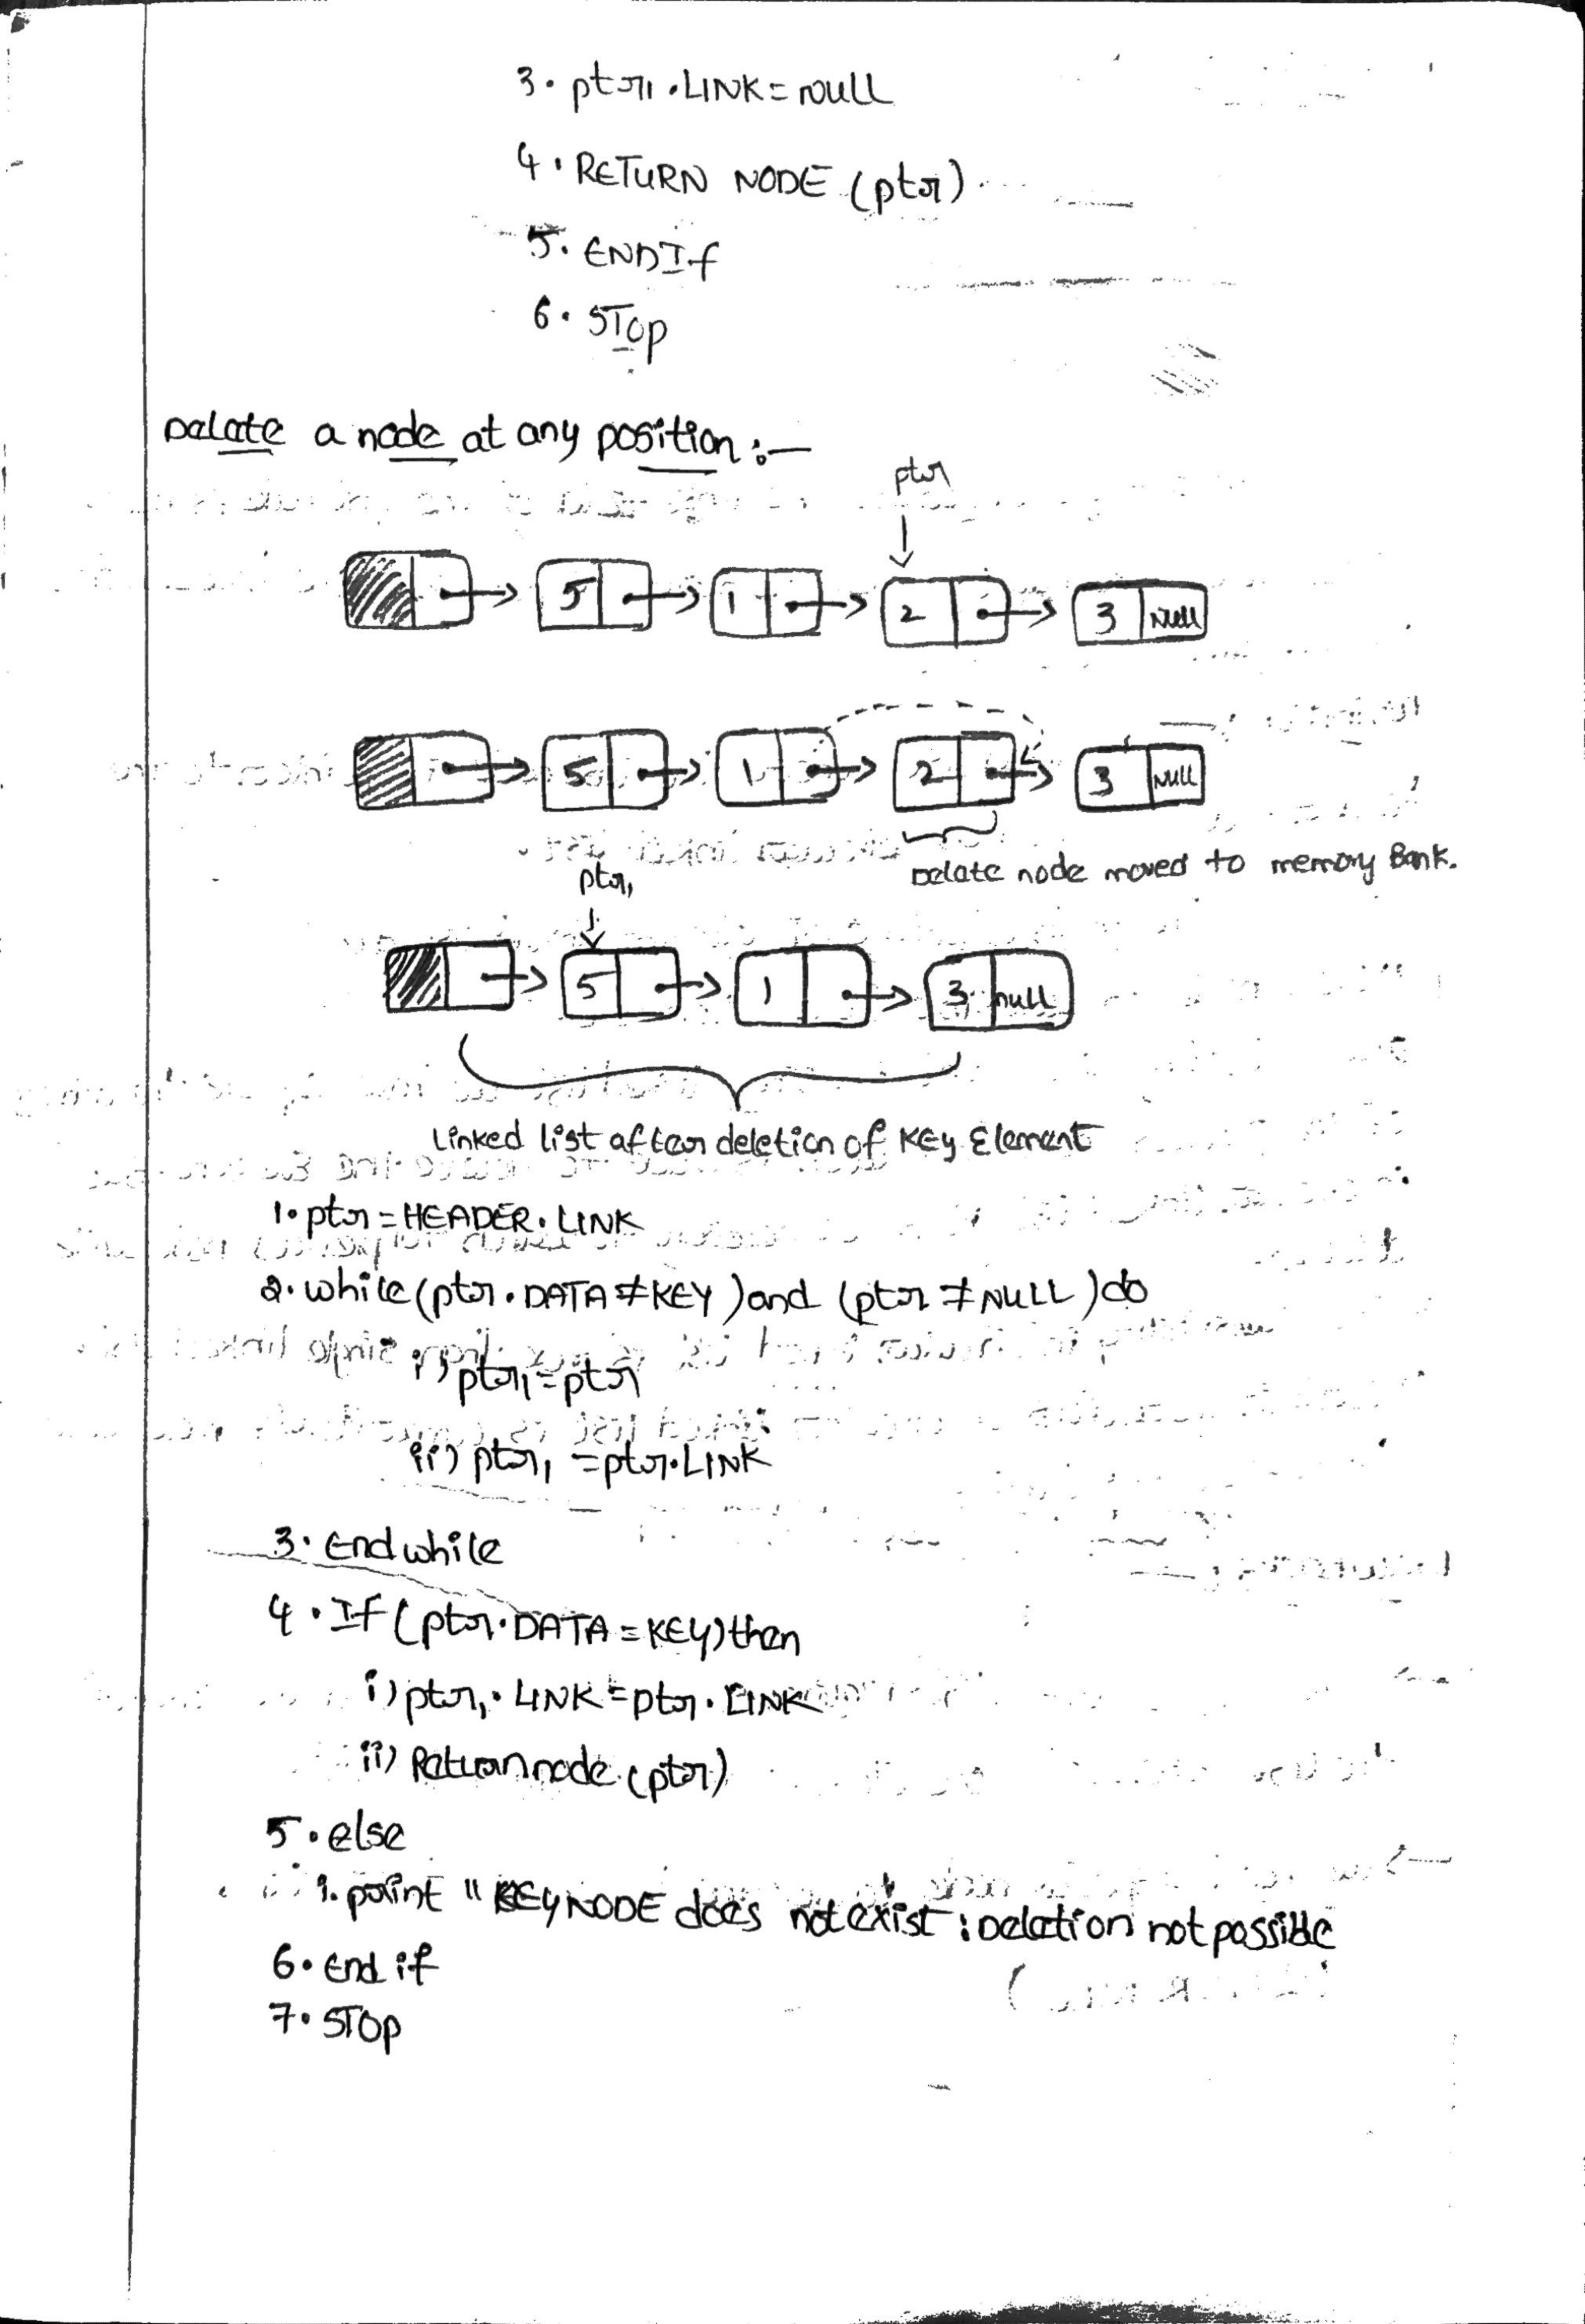 3. ptr1.LINK=NULL
4. RETURN NODE (ptr)
5. ENDIf
6. STOP
Delate a node at any position:-
ptr
5 1 2 3 Null
5 1 2 3 Null
Delate node moved to memory Bank.
ptr1
5 1 3 null
Linked list after deletion of KEY Element
1. ptr=HEADER.LINK
2. while(ptr.DATA≠KEY) and (ptr≠NULL) do
i) ptr1=ptr
ii) ptr1=ptr.LINK
3. End while
4. If(ptr.DATA=KEY) then
i) ptr1.LINK=ptr.LINK
ii) Return node (ptr)
5. else
i. print "KEY NODE does not exist: Delation not possible
6. End if
7. STOP